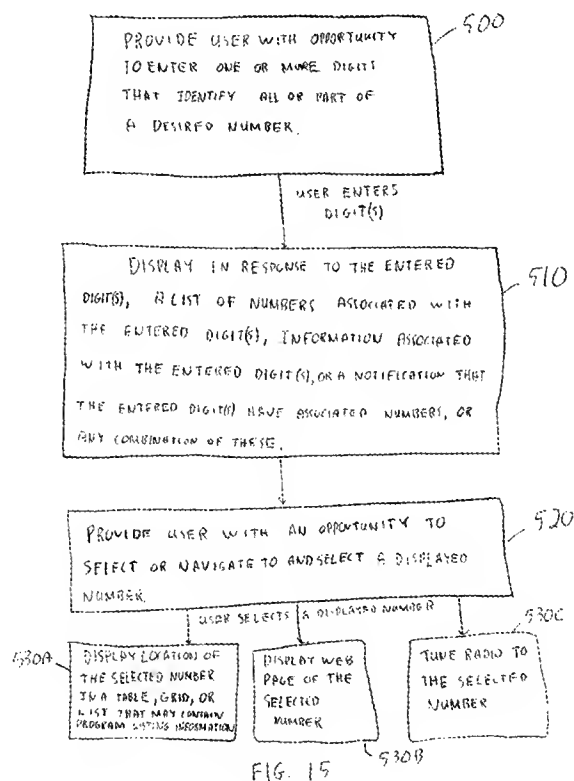 500
PROVIDE USER WITH OPPORTUNITY
TO ENTER ONE OR MORE DIGITS
THAT IDENTIFY ALL OR PART OF
A DESIRED NUMBER.
USER ENTERS
DIGIT(S)
510
DISPLAY IN RESPONSE TO THE ENTERED
DIGIT(S), A LIST OF NUMBERS ASSOCIATED WITH
THE ENTERED DIGIT(S), INFORMATION ASSOCIATED
WITH THE ENTERED DIGIT(S), OR A NOTIFICATION THAT
THE ENTERED DIGIT(S) HAVE ASSOCIATED NUMBERS, OR
ANY COMBINATION OF THESE.
520
PROVIDE USER WITH AN OPPORTUNITY TO
SELECT OR NAVIGATE TO AND SELECT A DISPLAYED
NUMBER.
USER SELECTS A DISPLAYED NUMBER
530A
DISPLAY LOCATION OF
THE SELECTED NUMBER
IN A TABLE, GRID, OR
LIST THAT MAY CONTAIN
PROGRAM LISTING INFORMATION
DISPLAY WEB
PAGE OF THE
SELECTED
NUMBER
530B
530C
TUNE RADIO TO
THE SELECTED
NUMBER
FIG. 15